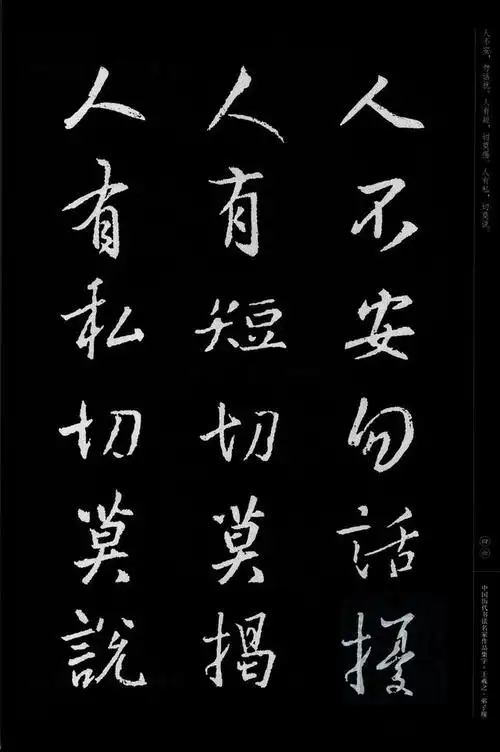 人不安勿話擾
人有短切莫揭
人有私切莫說
人不安，勿话扰。人有短，切莫揭。人有私，切莫说。
中国历代书法名家作品集字·王羲之·弟子规